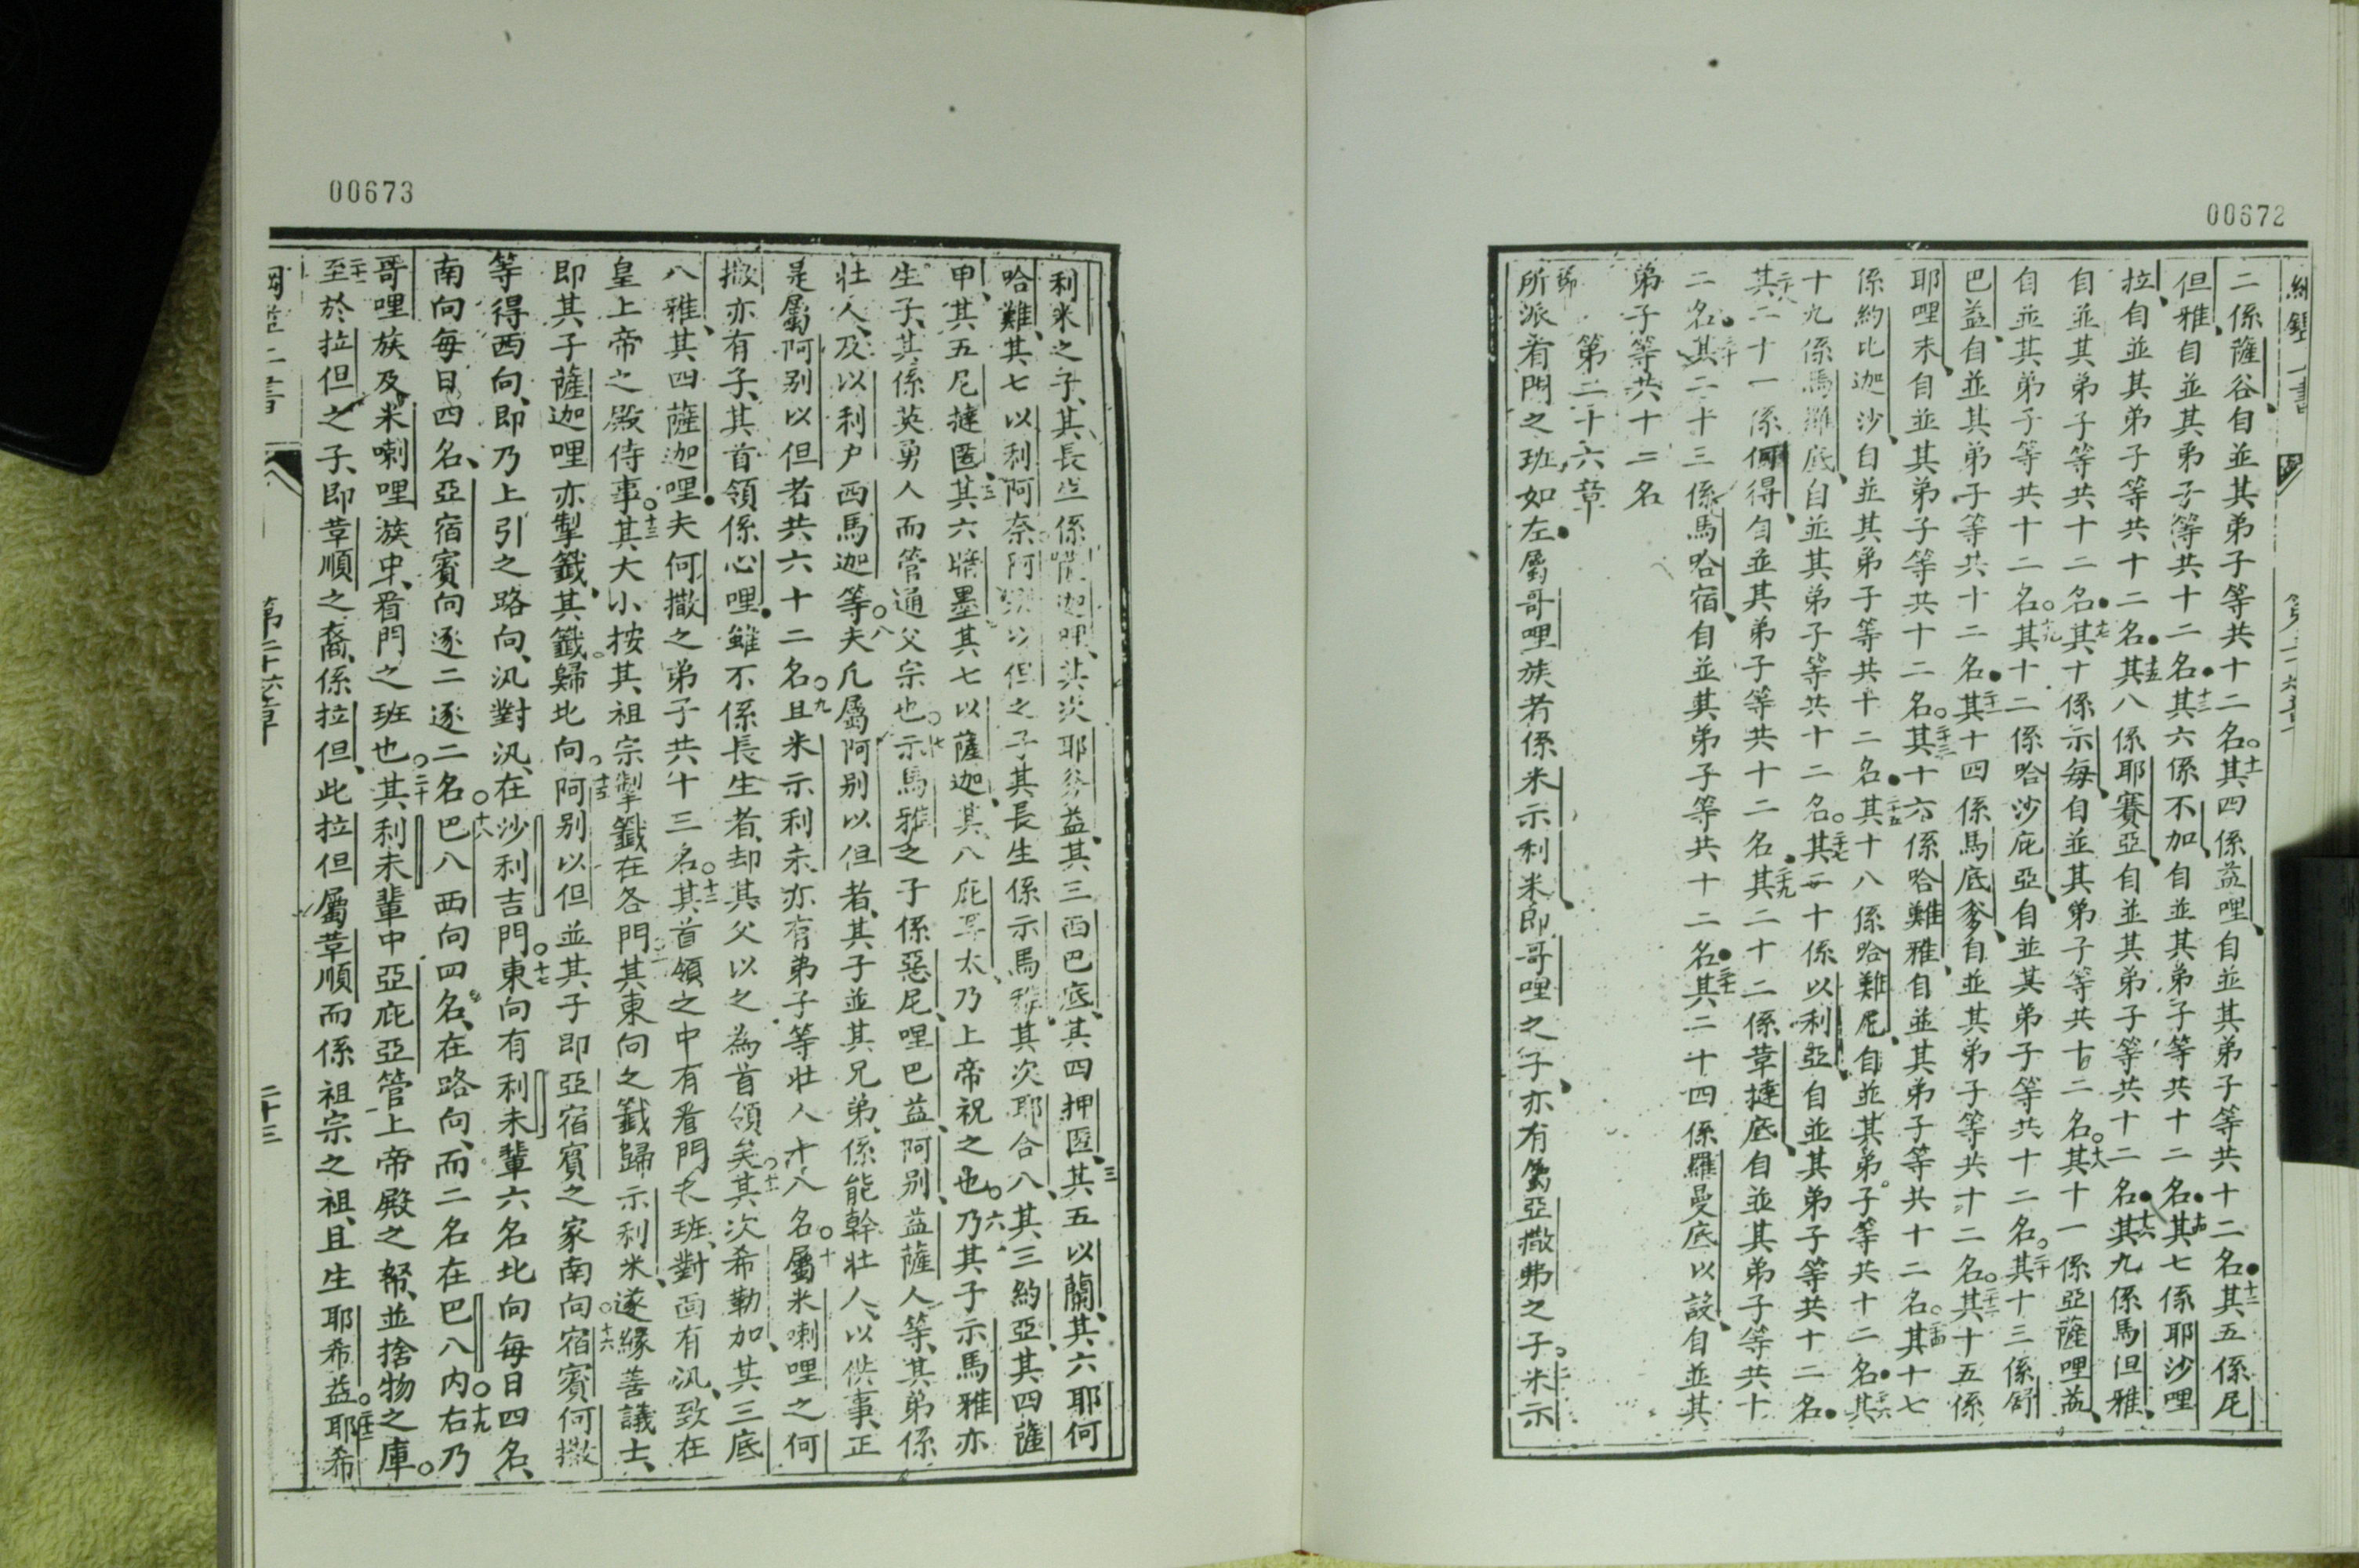 00672
二係薩谷自並其弟子等共十二名其四係益哩自並其弟子等共十二名其五係尼
但雅自並其弟子等共十二名其六係不加自並其弟子等共十二名其七係耶沙哩
拉自並其弟子等共十二名其八係耶賽亞自並其弟子等共十二名其九係馬但雅
自並其弟子等共十二名其十係示每自並其弟子等共十二名其十一係亞薩哩益
自並其弟子等共十二名其十二係哈沙庇亞自並其弟子等共十二名其十三係舒
巴益自並其弟子等共十二名其十四係馬底爹自並其弟子等共十二名其十五係
耶哩末自並其弟子等共十二名其十六係哈難雅自並其弟子等共十二名其十七
係約比迦沙自並其弟子等共十二名其十八係哈難尼自並其弟子等共十二名其
十九係馬羅底自並其弟子等共十二名其二十係以利亞自並其弟子等共十二名
其二十一係得自並其弟子等共十二名其二十二係葦撻底自並其弟子等共十
二名其二十三係馬哈宿自並其弟子等共十二名其二十四係羅曼底以設自並其
弟子等共十二名
第二十六章
所派看門之班如左屬哥哩族者係米示利米即哥哩之子亦有屬亞撒弗之子米示
00673
利米之子其長生係迦其次耶益其三西巴底其四押匿其五以蘭其六耶何
哈難其七以利阿奈阿別以但之子其長生係示馬雅其次耶合八其三約亞其四薩
甲其五尼撻匿其六墨其七以薩迦其八庇太乃上帝祝之也乃其子示馬雅亦
生子其係英勇人而管通父宗也示馬雅之子係惡尼哩巴益阿別益薩人等其弟係
壯人及以利户西馬迦等夫凡屬阿別以但者其子並其兄弟係能幹壯人以供事正
是屬阿別以但者共六十二名且米示利米亦有弟子等壯人十八名屬米喇哩之何
撒亦有子其首領係心哩雖不係長生者却其父以之為首領矣其次希勒加其三底
八雅其四薩迦哩夫何撒之弟子共十三名其首領之中有看門之班對面有汛致在
皇上帝之殿侍事其大小按其祖宗掣籤在各門其東向之籤歸示利米遂緣善議士
即其子薩迦哩亦掣籤其籤歸北向阿別以但並其子即亞宿賓之家南向宿賓何撒
等得西向即乃上引之路向汛對汛在沙利吉門東向有利未輩六名北向每日四名
南向每日四名亞宿賓向逐二逐二名巴八西向四名在路向而二名在巴八内右乃
哥哩族及米喇哩族中看門之班也其利未輩中亞庇亞管上帝殿之帑並捨物之庫
至於拉但之子即葦順之裔係拉但此拉但屬葦順而係祖宗之祖且生耶希益耶希
第二十六章
二十三